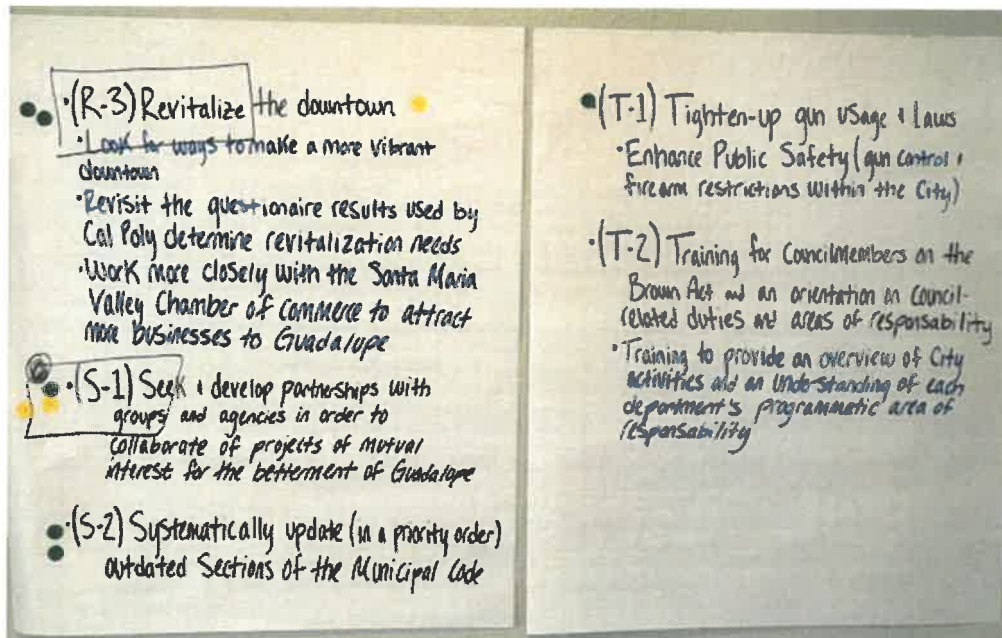 •(R-3) Revitalize the downtown
•Look for ways to make a more vibrant
downtown
•Revisit the questionaire results used by
Cal Poly determine revitalization needs
•Work more closely with the Santa Maria
Valley Chamber of Commerce to attract
more businesses to Guadalupe
•(S-1) Seek & develop partnerships with
groups and agencies in order to
collaborate of projects of mutual
interest for the betterment of Guadalupe
•(S-2) Systematically update (in a priority order)
outdated Sections of the Municipal Code
•(T-1) Tighten-up gun usage & Laws
•Enhance Public Safety (gun control &
firearm restrictions within the City)
•(T-2) Training for Councilmembers on the
Brown Act and an orientation on council-
related duties and areas of responsability
•Training to provide an overview of City
activities and an understanding of each
department's programmatic area of
responsability